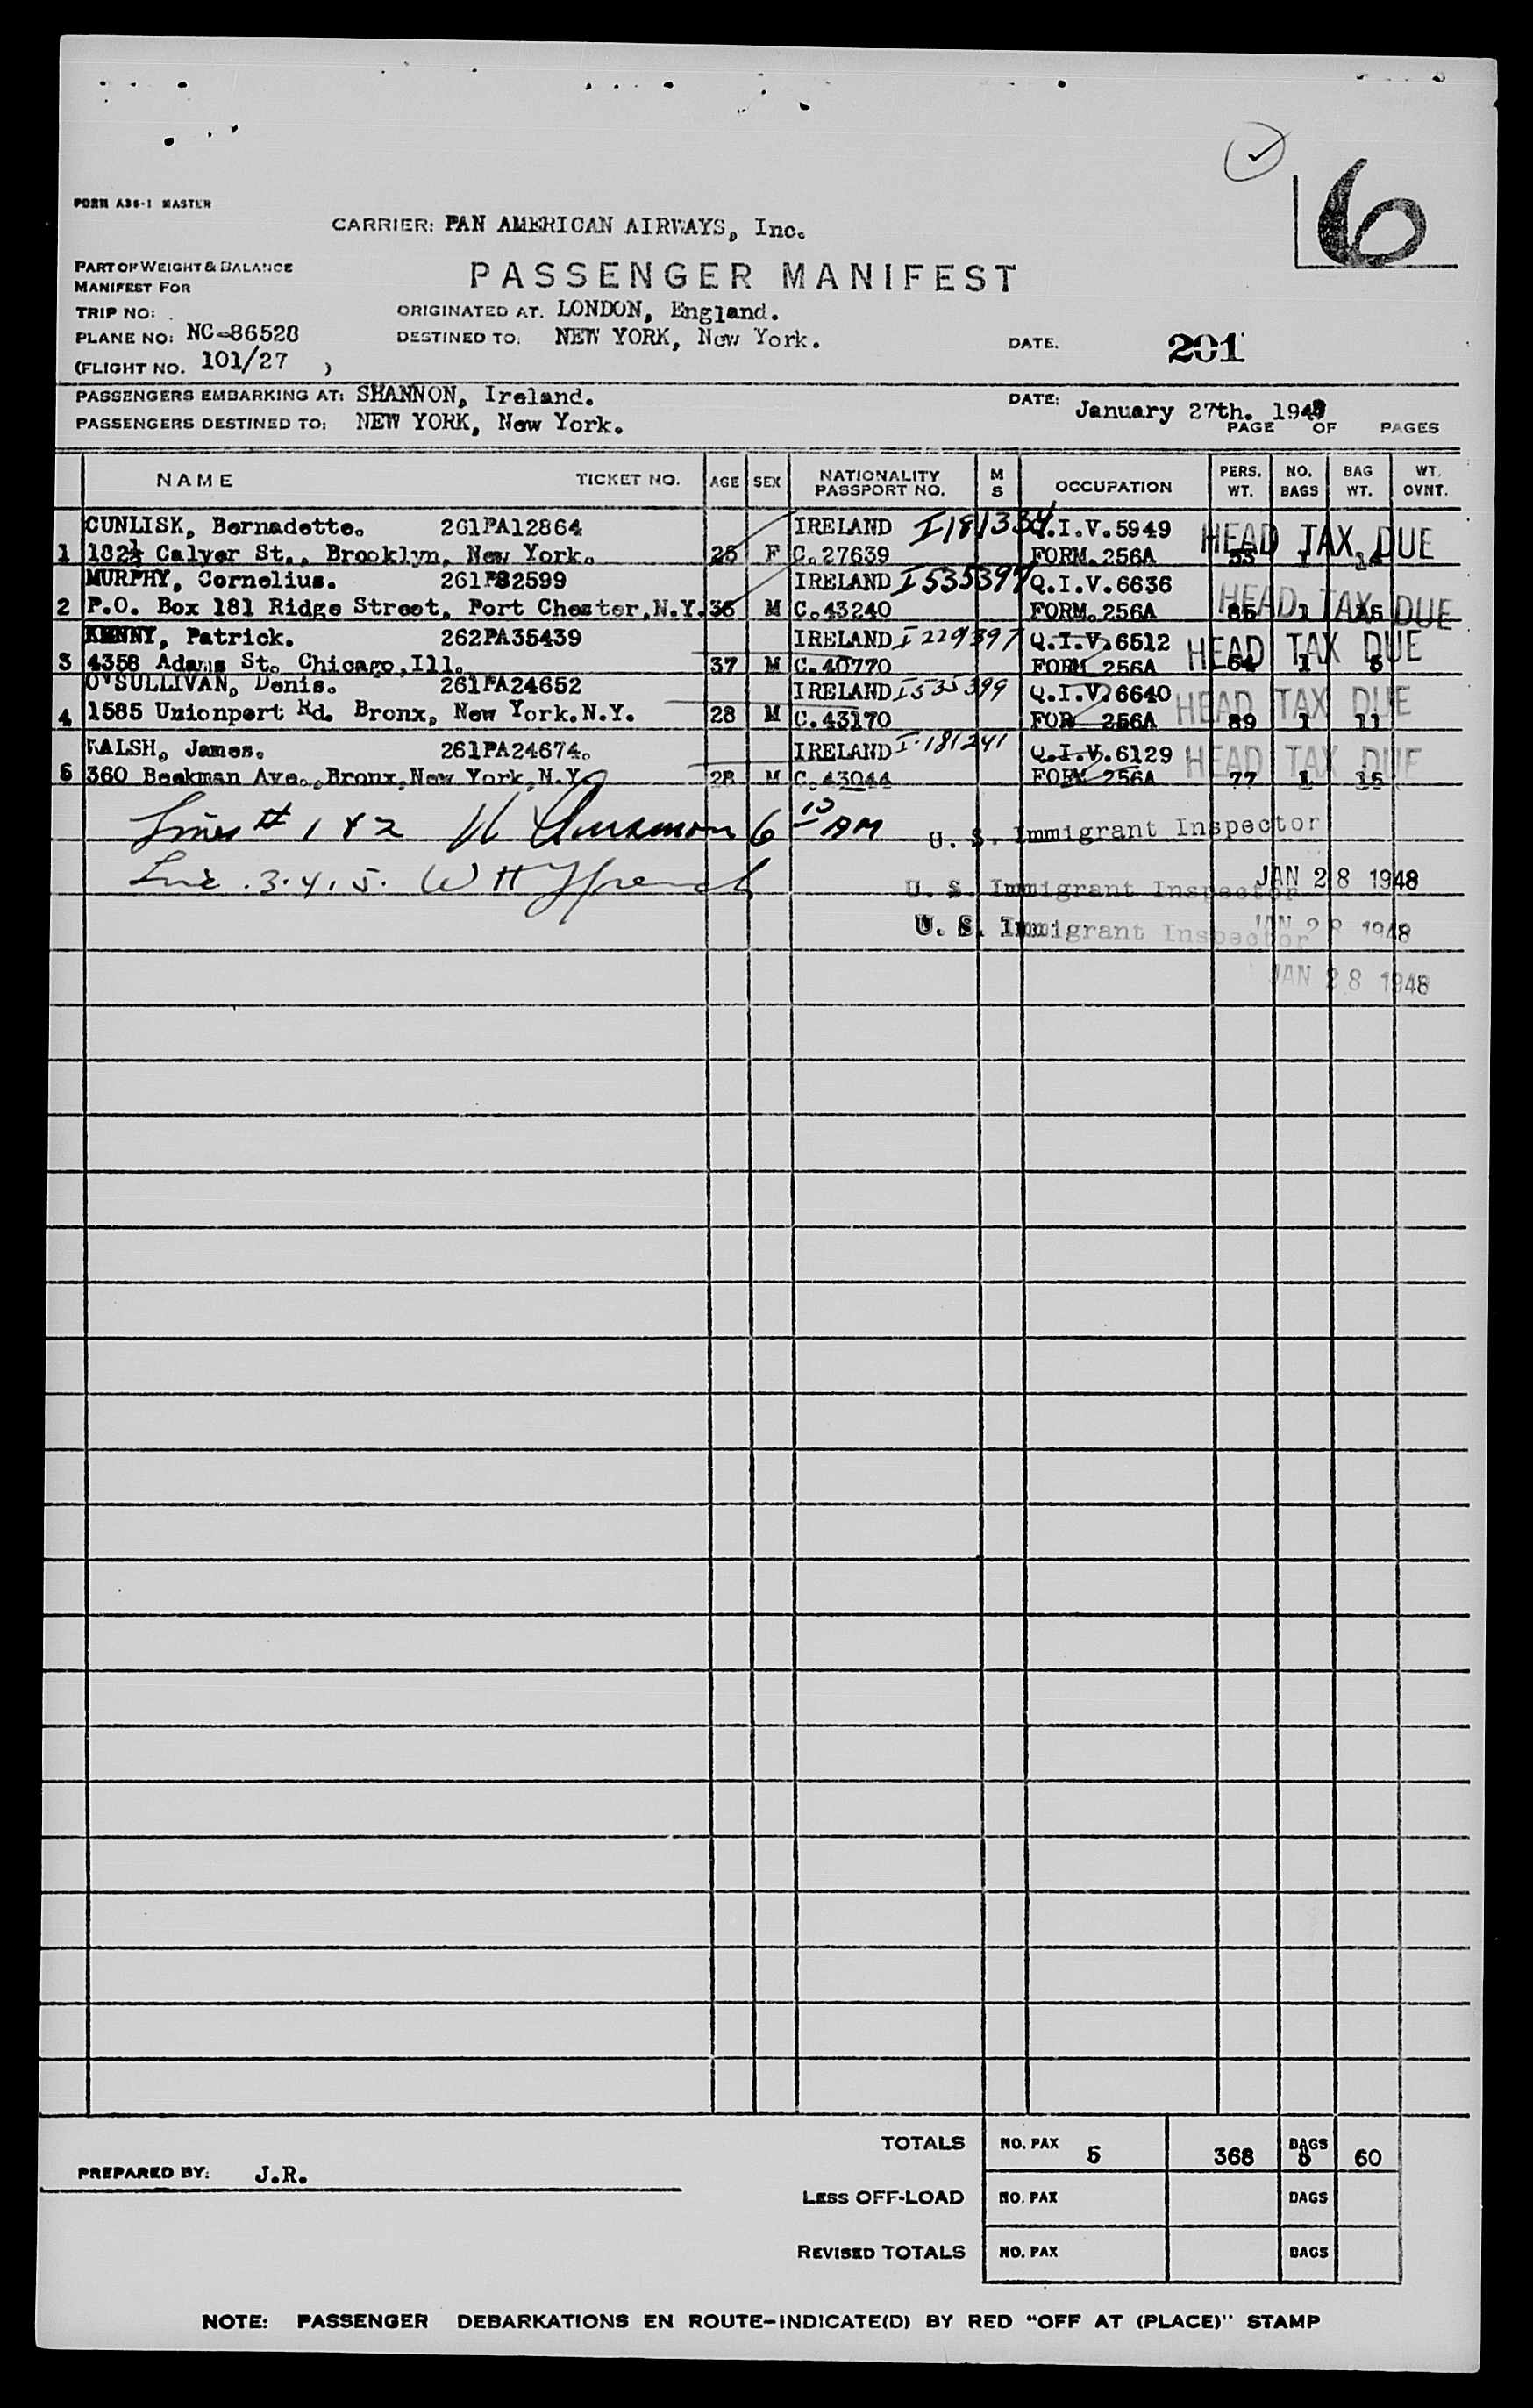 6
FORM A36-1 MASTER
CARRIER: PAN AMERICAN AIRWAYS, Inc.
PART OF WEIGHT & BALANCE
MANIFEST FOR
PASSENGER MANIFEST
TRIP NO:
ORIGINATED AT. LONDON, England.
PLANE NO: NC-86528
DESTINED TO: NEW YORK, New York.
DATE. 201
(FLIGHT NO. 101/27 )
PASSENGERS EMBARKING AT: SHANNON, Ireland.
DATE: January 27th. 194
PASSENGERS DESTINED TO: NEW YORK, New York.
PAGE OF PAGES
NAME TICKET NO. AGE SEX NATIONALITY PASSPORT NO. M S OCCUPATION PERS. WT. NO. BAGS BAG WT. WT. OVNT.
CUNLISK, Bernadette. 261PA12864 IRELAND I181334 Q.I.V.5949 HEAD TAX DUE
1 182½ Calyer St., Brooklyn, New York. 25 F C.27639 FORM.256A 53 1
MURPHY, Cornelius. 261P82599 IRELAND I535397 Q.I.V.6636 HEAD TAX DUE
2 P.O. Box 181 Ridge Street, Port Chester,N.Y. 36 M C.43240 FORM.256A 85 1
KENNY, Patrick. 262PA35439 IRELAND I229397 Q.I.V.6512 HEAD TAX DUE
3 4358 Adams St. Chicago,Ill. 37 M C.40770 FORM 256A 64 1
O'SULLIVAN, Denis. 261PA24652 IRELAND I535399 Q.I.V.6640 HEAD TAX DUE
4 1585 Unionport Rd. Bronx, New York.N.Y. 28 M C.43170 FOR 256A 89 1 11
WALSH, James. 261PA24674. IRELAND I.181241 Q.I.V.6129 HEAD TAX DUE
5 360 Beekman Ave.,Bronx,New York,N.Y. 28 M C.43044 FORM 256A 77 1 15
Lines # 1 & 2 6 10 AM U. S. Immigrant Inspector
JAN 28 1948
Line .3.4.5. W H Ffrench U. S. Immigrant Inspector
U. S. Immigrant Inspector JAN 28 1948
JAN 28 1948
TOTALS NO. PAX 5 368 BAGS 5 60
PREPARED BY: J.R.
LESS OFF-LOAD NO. PAX BAGS
REVISED TOTALS NO. PAX BAGS
NOTE: PASSENGER DEBARKATIONS EN ROUTE-INDICATE(D) BY RED "OFF AT (PLACE)" STAMP